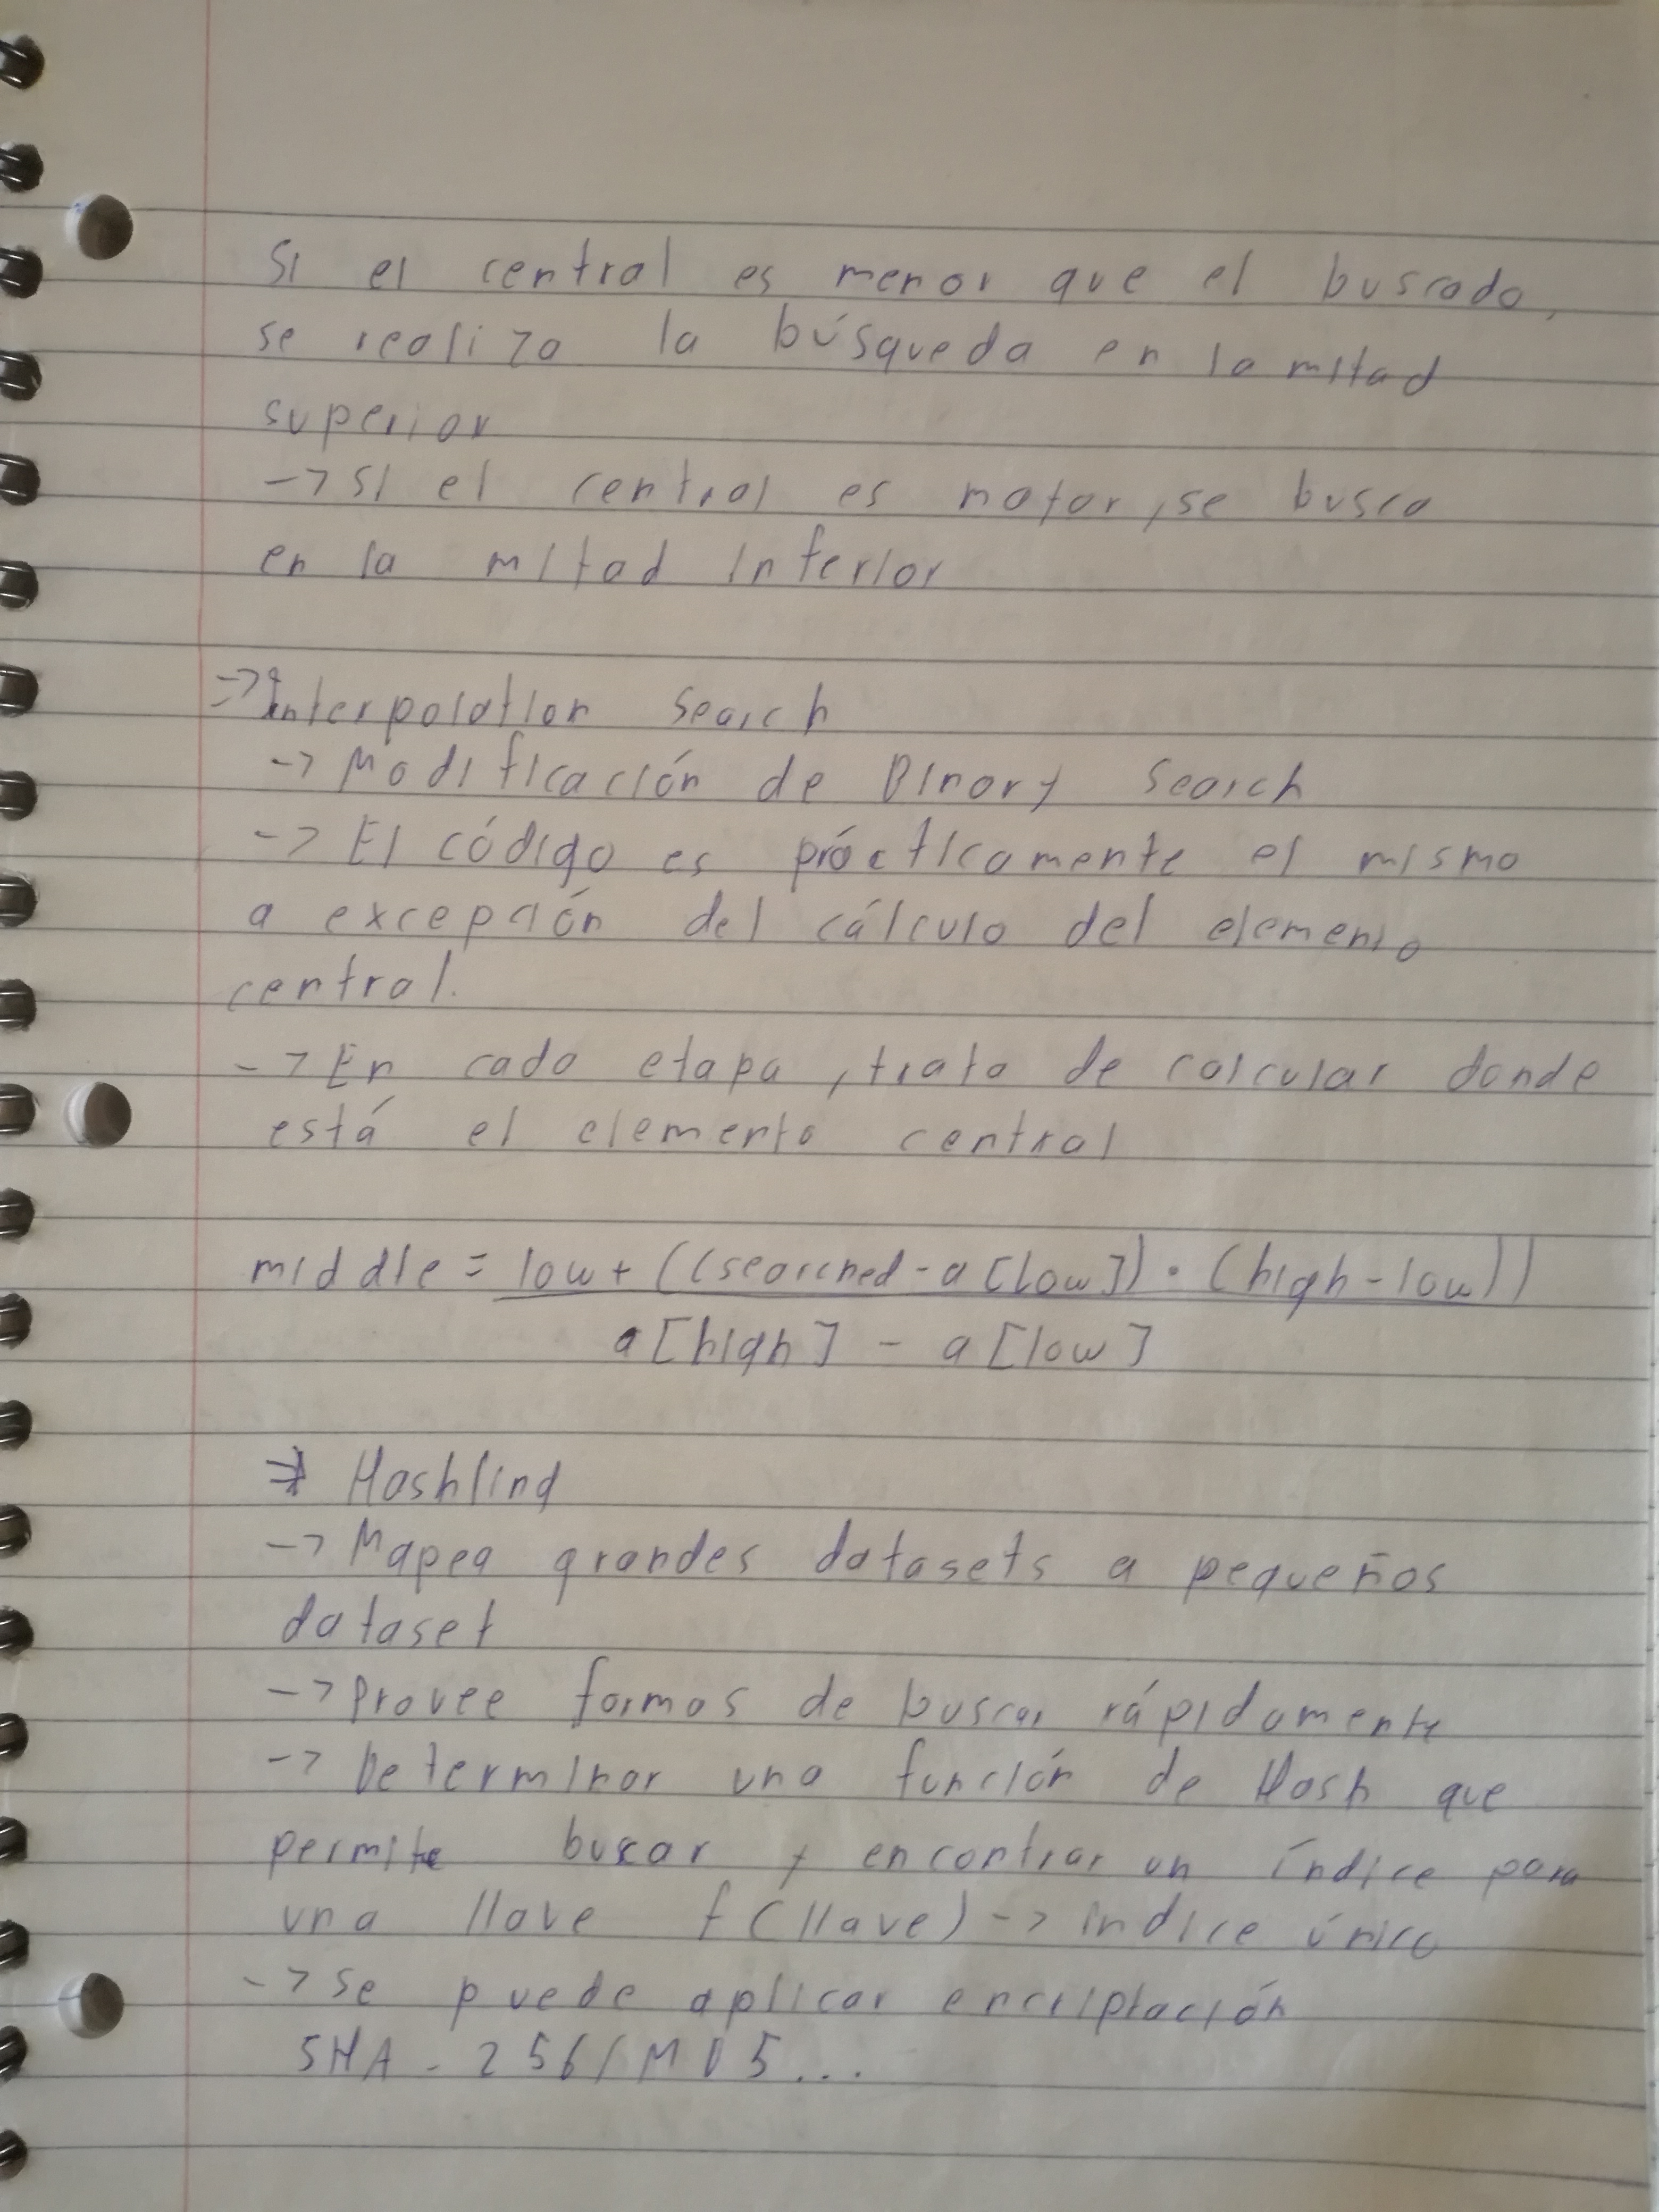 Si el central es menor que el buscado,
se realiza la búsqueda en la mitad
superior
-> Si el central es mayor, se busca
en la mitad inferior
=> Interpolation Search
-> Modificación de Binary Search
-> El código es prácticamente el mismo
a excepción del cálculo del elemento
central.
-> En cada etapa, trata de calcular donde
está el elemento central
middle = low + ((searched - a[low]) · (high - low))
a[high] - a[low]
=> Hashind
-> Mapea grandes datasets a pequeños
dataset
-> Provee formas de buscar rápidamente
-> Determinar una función de Hash que
permite buscar y encontrar un índice para
una llave f(llave) -> indice único
-> Se puede aplicar encriptación
SHA - 256/MD5...